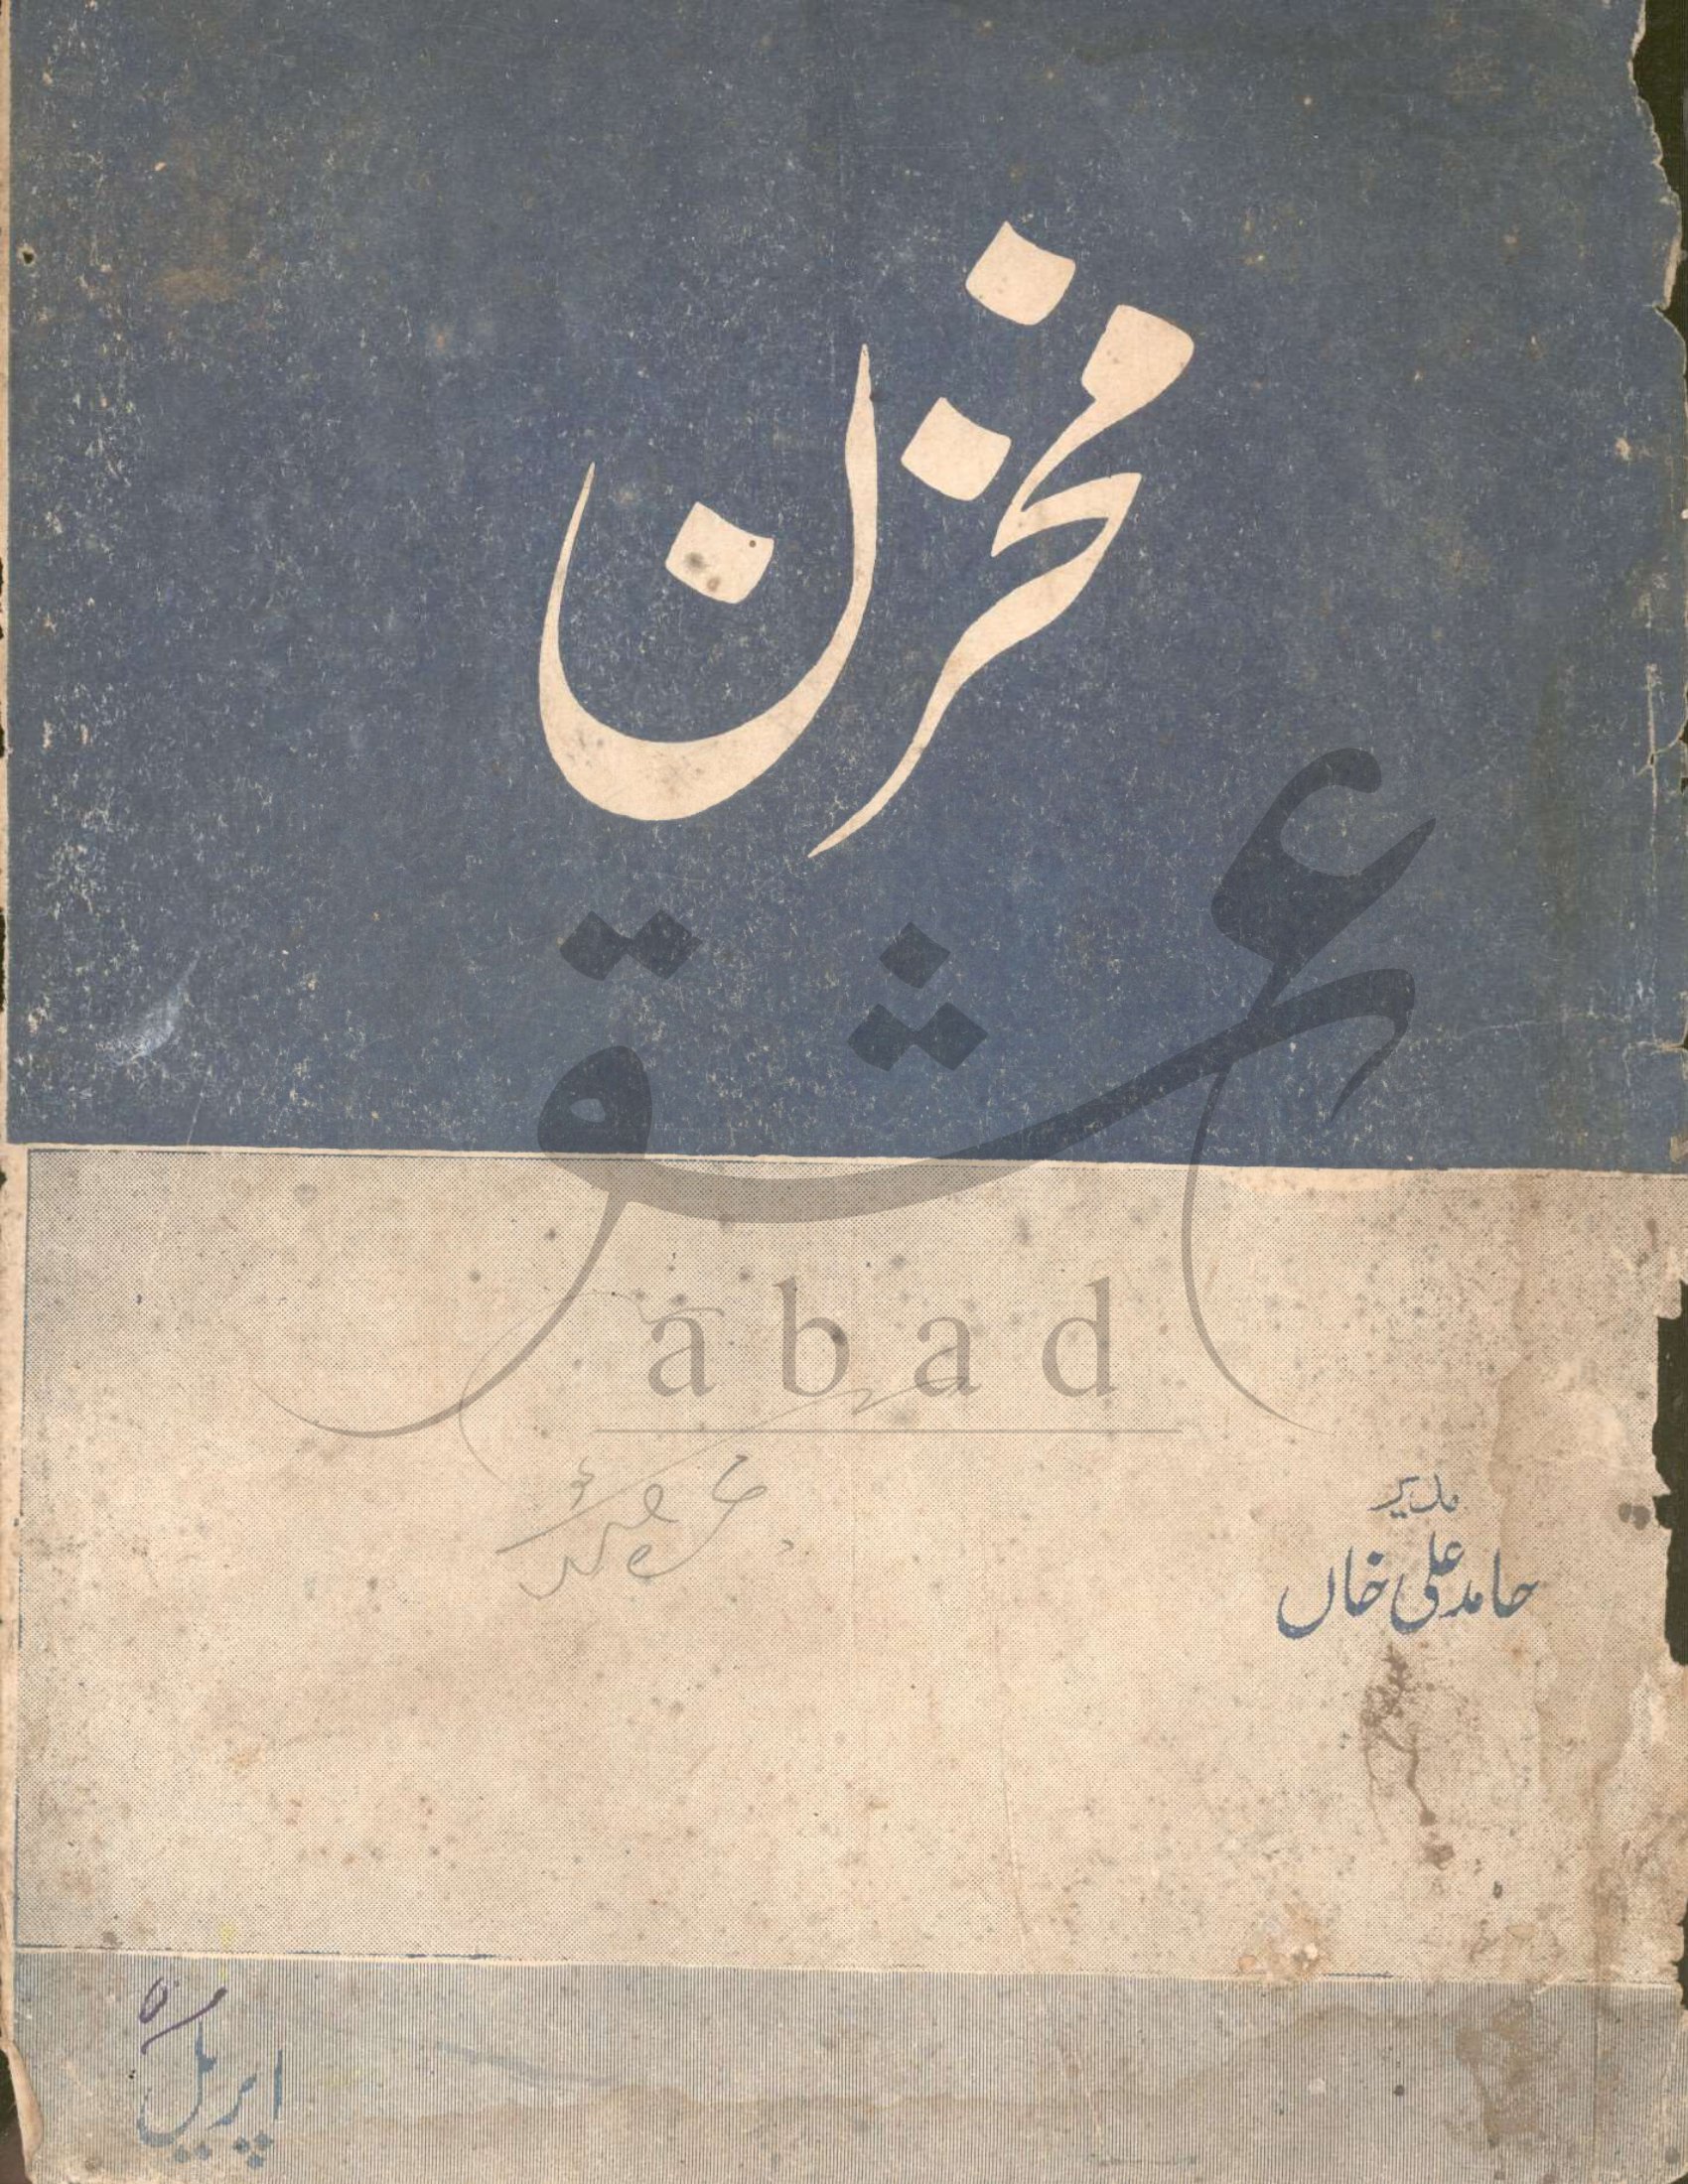 مخزن
عشق
abad
مدیر
حامد علی خاں
اپریل